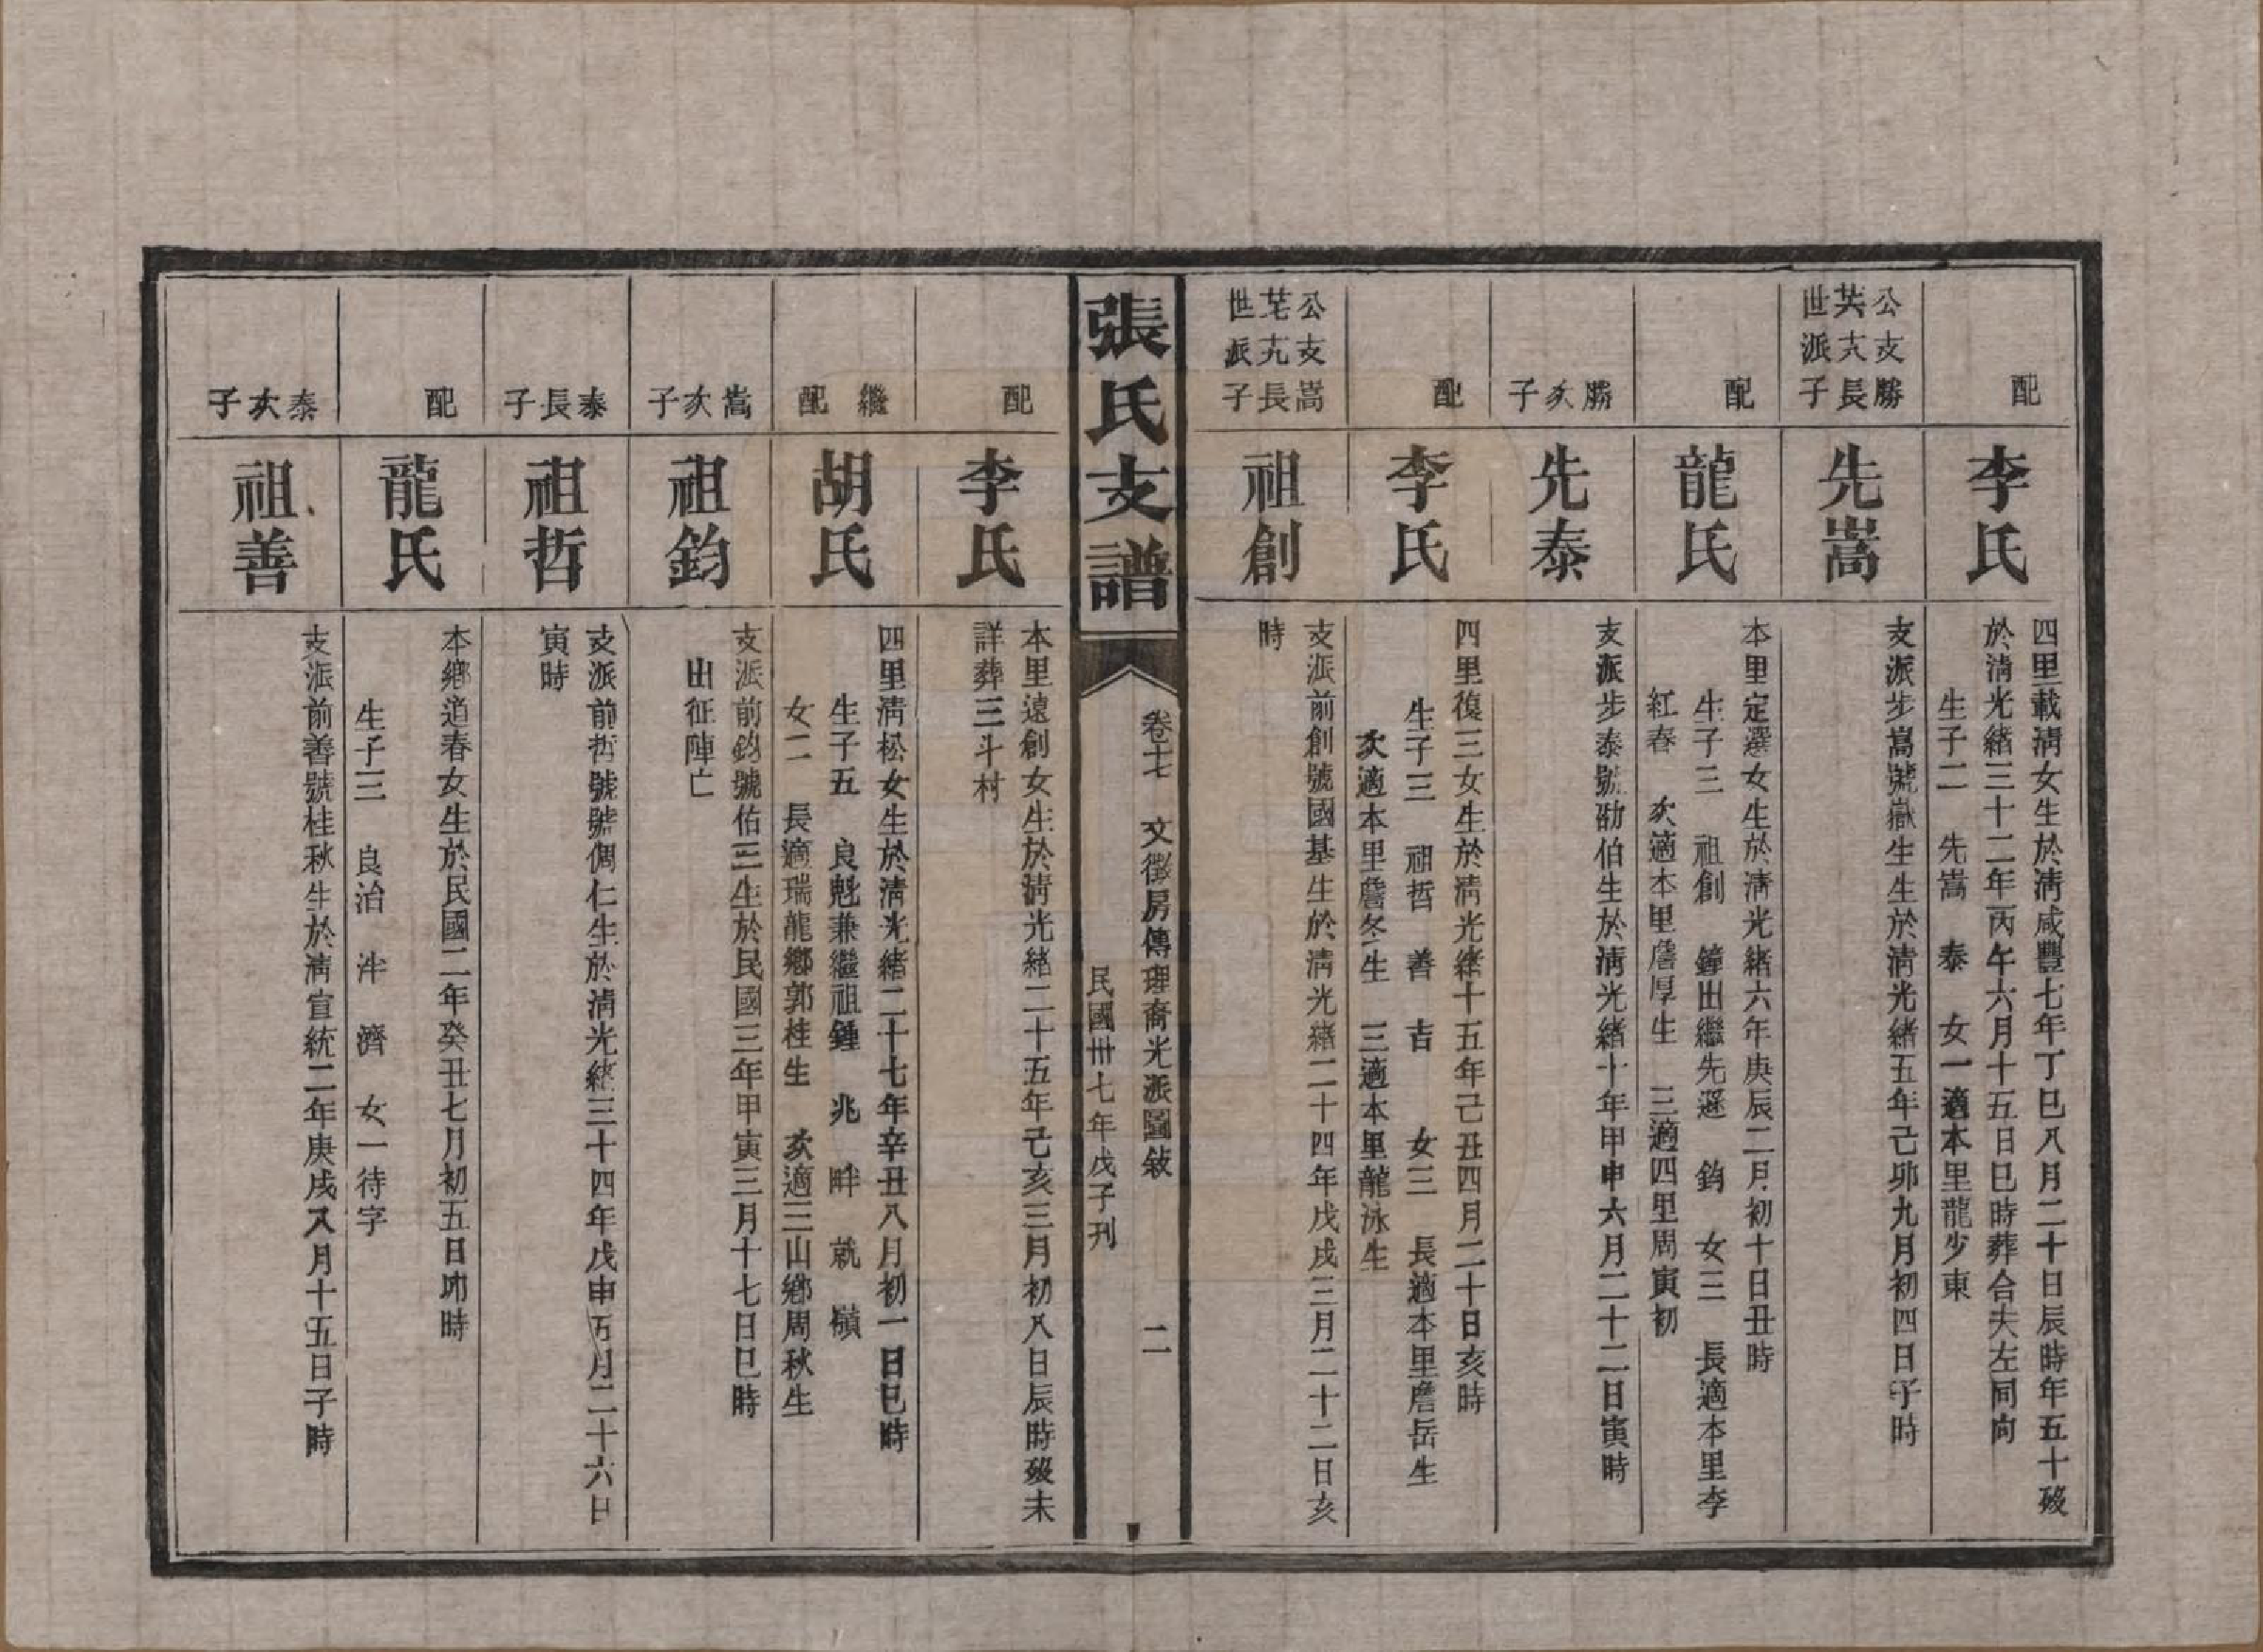 配
李氏
四里載淸女生於淸咸豐七年丁巳八月二十日辰時年五十歿
於淸光緒三十二年丙午六月十五日巳時葬合夫左同向
生子二　先嵩　泰　女一適本里龍少東
公支勝
共大長
世派子
先嵩
支派步嵩號嶽生生於淸光緒五年己卯九月初四日子時
配
龍氏
本里定選女生於淸光緒六年庚辰二月初十日丑時
生子三　祖創　鐘出繼先遜　鈞　女三　長適本里李
紅春　次適本里詹厚生　三適四里周寅初
勝次子
先泰
支派步泰號勁伯生於淸光緒十年甲申六月二十二日寅時
配
李氏
四里復三女生於淸光緒十五年己丑四月二十日亥時
生子三　祖哲　善　吉　女三　長適本里詹岳生
次適本里詹冬生　三適本里龍泳生
公支嵩
芼九長
世派子
祖創
支派前創號國基生於淸光緒二十四年戊戌三月二十二日亥
時
張氏支譜
卷十七　文徵房傳理裔光派圖敍　二
民國卅七年戊子刊
配
李氏
本里遠創女生於淸光緒二十五年己亥三月初八日辰時歿未
詳葬三斗村
繼配
胡氏
四里淸松女生於淸光緒二十七年辛丑八月初一日巳時
生子五　良魁兼繼祖鍾　兆　畔　就　嶺
女二　長適瑞龍鄉郭桂生　次適三山鄉周秋生
嵩次子
祖鈞
支派前鈞號佑三生於民國三年甲寅三月十七日巳時
出征陣亡
泰長子
祖哲
支派前哲號號倜仁生於淸光緒三十四年戊申五月二十六日
寅時
配
龍氏
本鄉道春女生於民國二年癸丑七月初五日卯時
生子三　良治　泮　濟　女一待字
泰次子
祖善
支派前善號桂秋生於淸宣統二年庚戌八月十五日子時